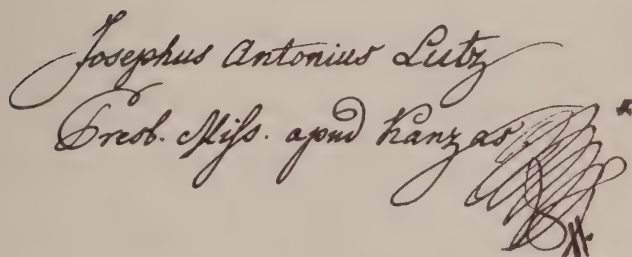 Josephus Antonius Lutz
Presb. Miss. apud Kanzas